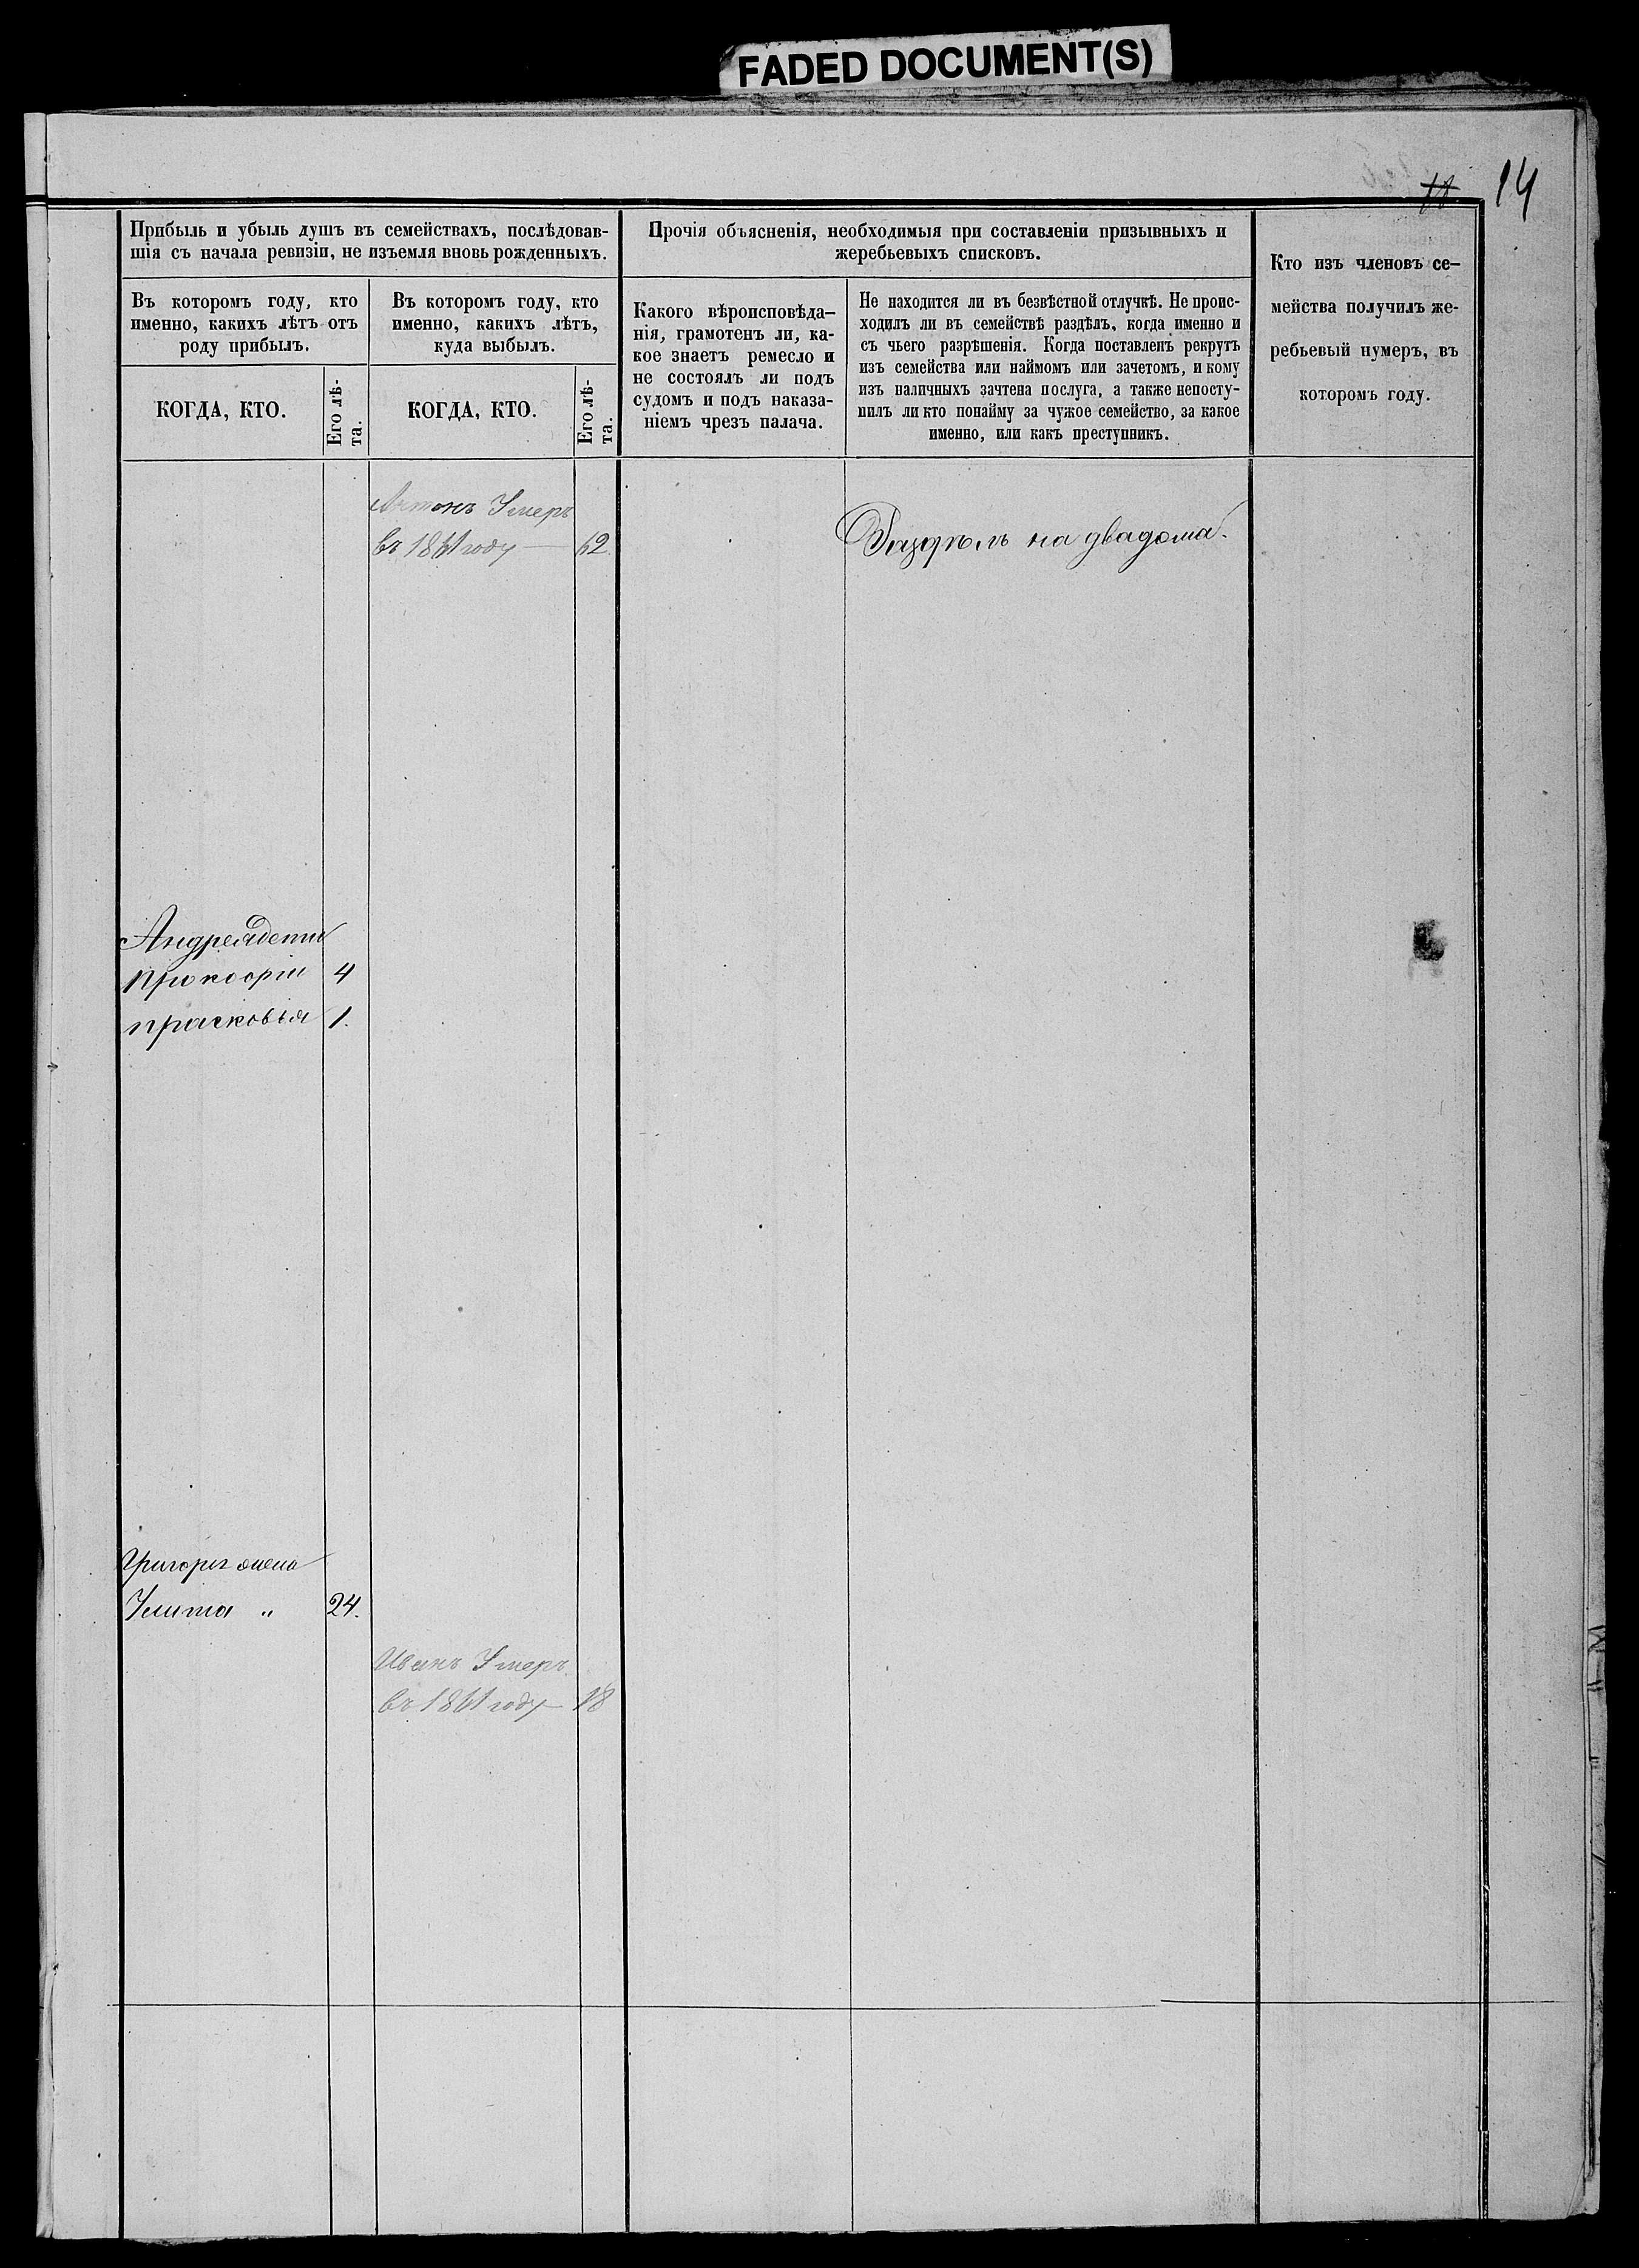 FADED DOCUMENT(S)
14
Прибыль и убыль душъ въ семействахъ, послѣдовав-
шія съ начала ревизіи, не изъемля вновь рожденныхъ.
Въ которомъ году, кто
именно, какихъ лѣтъ отъ
роду прибылъ.
Въ которомъ году, кто
именно, какихъ лѣтъ,
куда выбылъ.
КОГДА, КТО.
Его лѣ-
та.
КОГДА, КТО.
Его лѣ-
та.
Прочія объясненія, необходимыя при составленіи призывныхъ и
жеребьевыхъ списковъ.
Какого вѣроисповѣда-
нія, грамотенъ ли, ка-
кое знаетъ ремесло и
не состоялъ ли подъ
судомъ и подъ наказа-
ніемъ чрезъ палача.
Не находится ли въ безвѣстной отлучкѣ. Не проис-
ходилъ ли въ семействѣ раздѣлъ, когда именно и
съ чьего разрѣшенія. Когда поставленъ рекрутъ
изъ семейства или наймомъ или зачетомъ, и кому
изъ наличныхъ зачтена послуга, а также непосту-
пилъ ли кто понайму за чужое семейство, за какое
именно, или какъ преступникъ.
Кто изъ членовъ се-
мейства получилъ же-
ребьевый нумеръ, въ
которомъ году.
Антонъ Умеръ
въ 1861 году — 62.
Раздѣлъ на двадома.
Андрея дети
Прокофіи 4
прасковья 1.
Григорья жена
Улита „ 24.
Иванъ Умеръ
въ 1861 году — 18